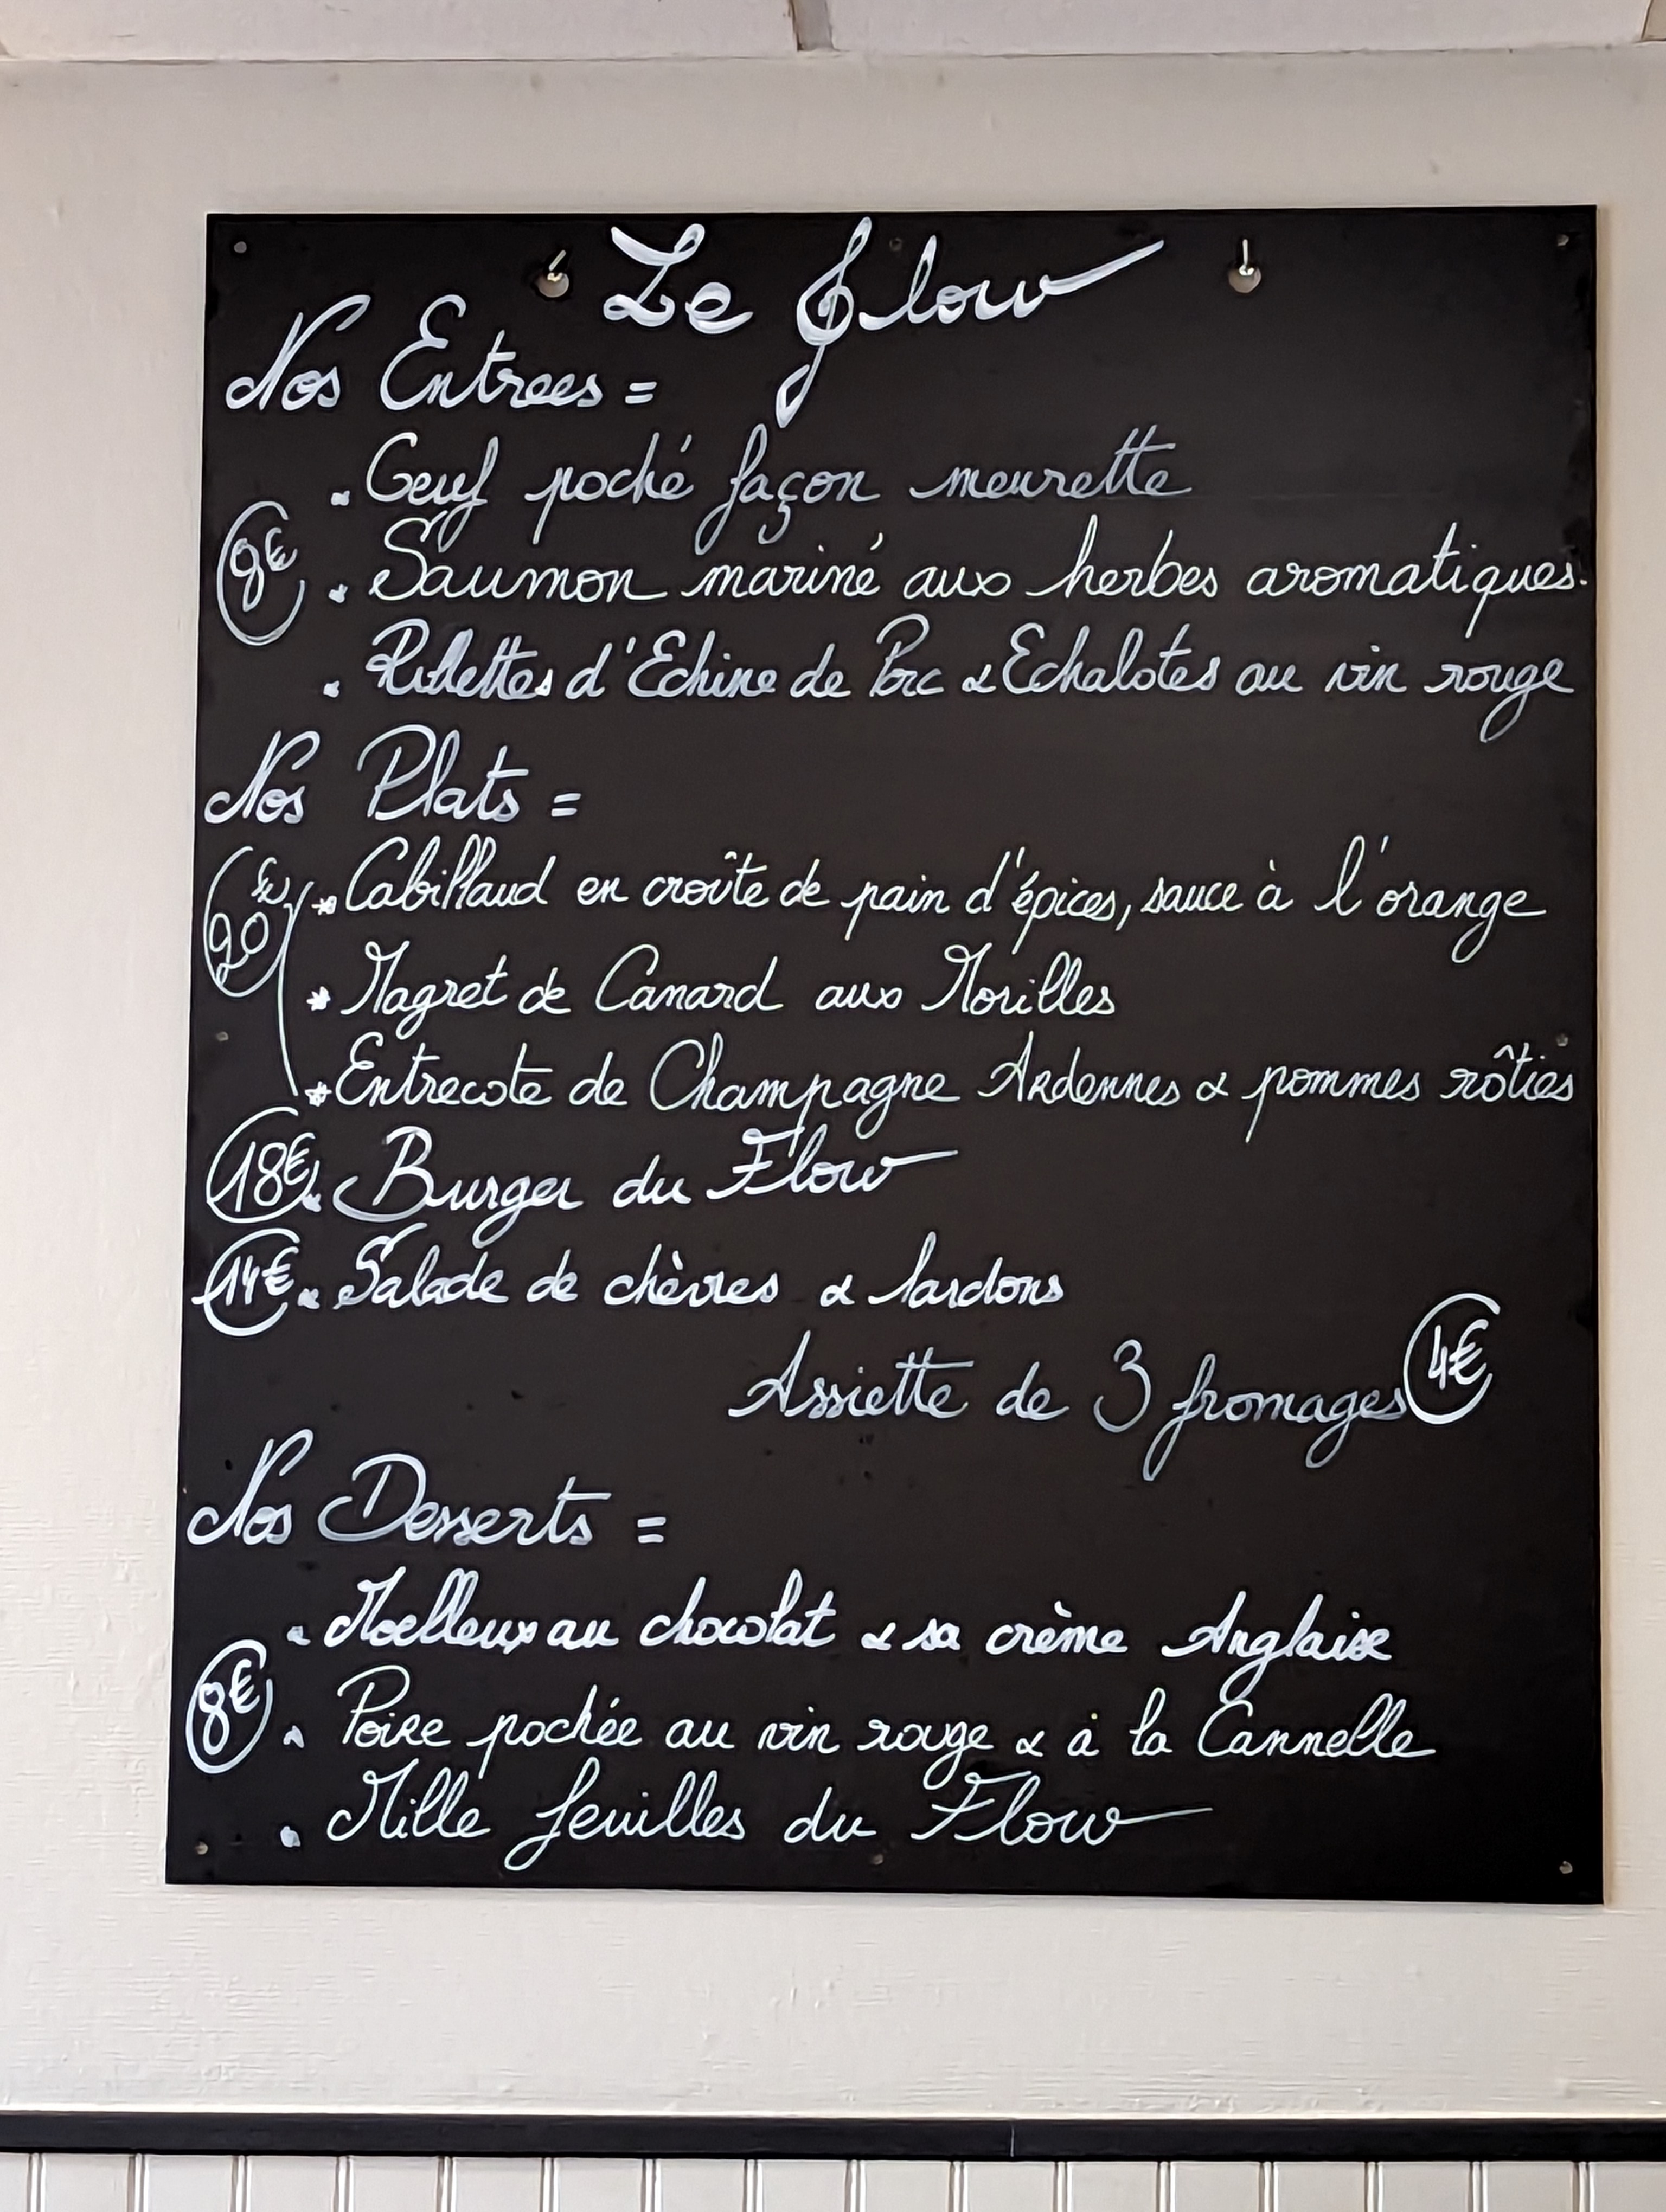 Le Flow
Nos Entrees =
. Oeuf poché façon meurette
9€ . Saumon mariné aux herbes aromatiques.
. Rillettes d'Echine de Porc & Echalotes au vin rouge
Nos Plats =
20€ * Cabillaud en croûte de pain d'épices, sauce à l'orange
* Magret de Canard aux Morilles
* Entrecote de Champagne Ardennes & pommes rôties
18€ . Burger du Flow
14€ . Salade de chèvres & lardons
Assiette de 3 fromages 4€
Nos Desserts =
. Moelleux au chocolat & sa crème Anglaise
8€ . Poire pochée au vin rouge & à la Cannelle
. Mille feuilles du Flow